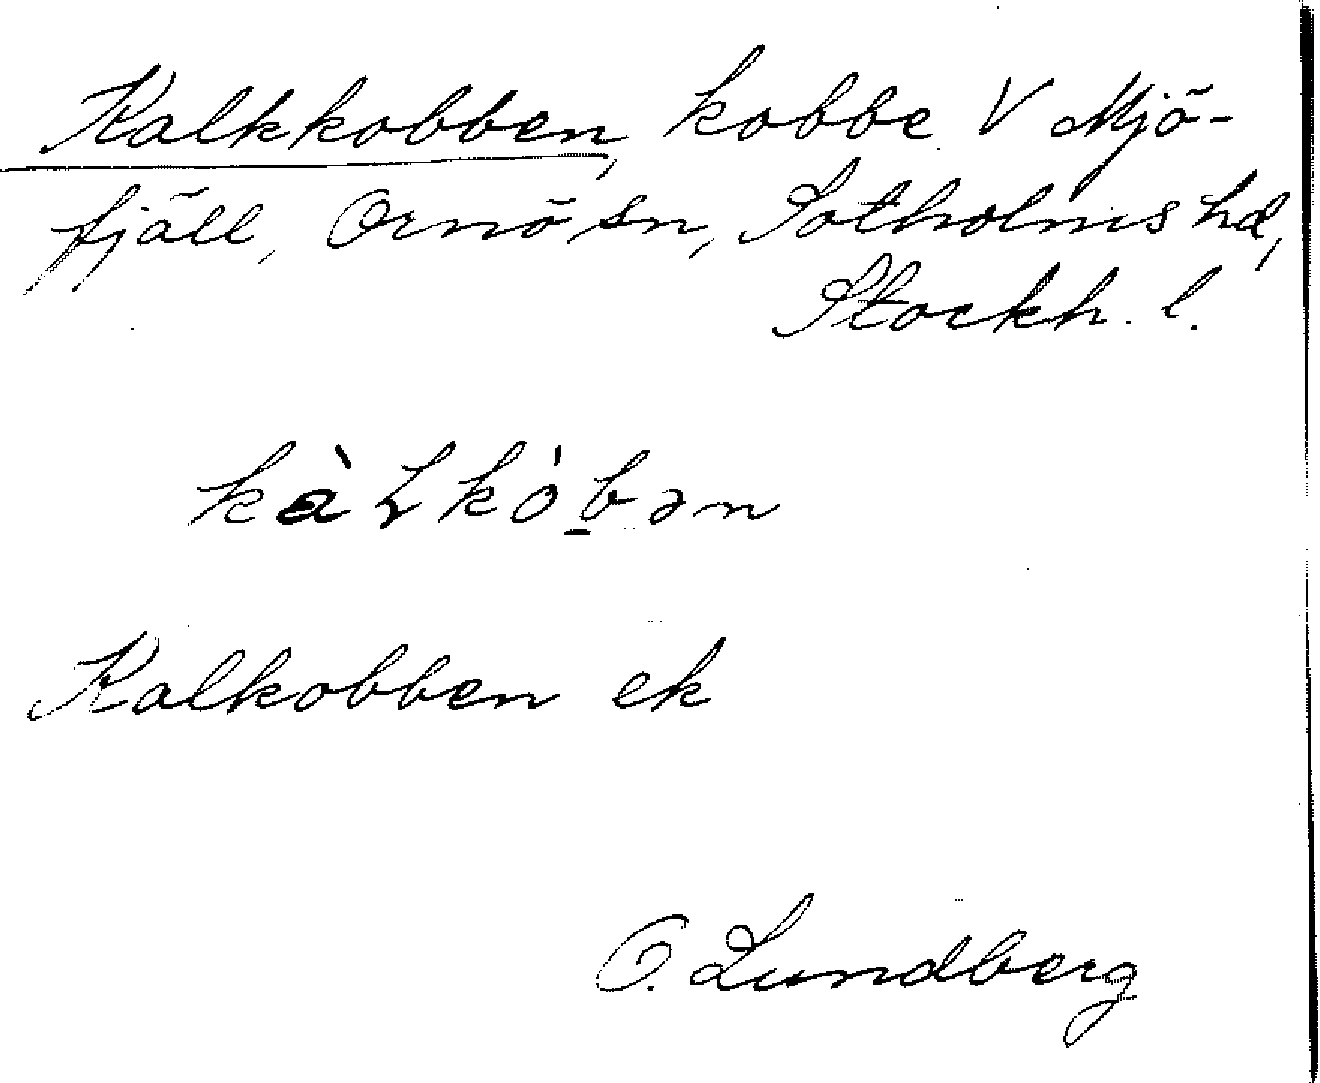 Kalkkobben, kobbe V Mjö-
fjäll, Ornö sn, Sotholms hd,
Stockh. l.
Kalkobben ek
O. Lundberg